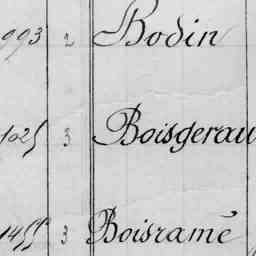 993 2 Bodin
1025 3 Boisgerau
3 Boisramé